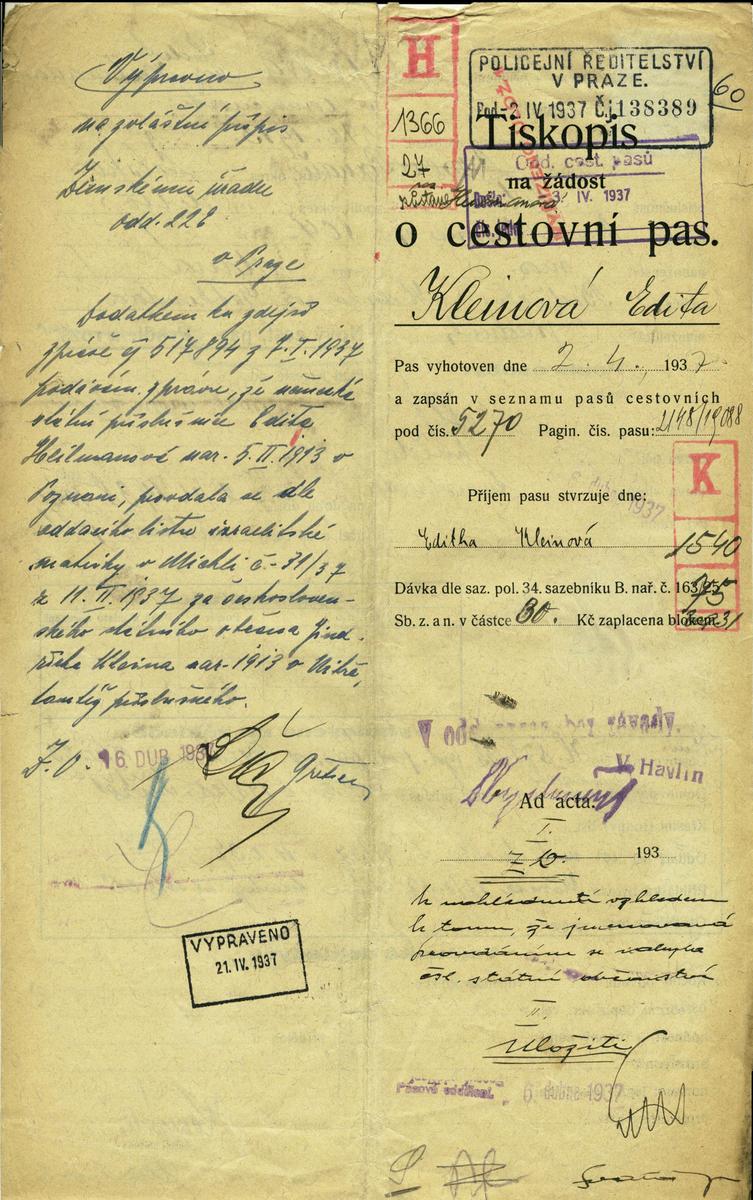 Výpravno
na zvláštní přípis
Zemskému úřadu
odd. 22
v Praze
Dodatkem ku zdejší
zprávě čj 517894 z 7.I.1937
zprávu, že německá
státní příslušnice Edita
Heilmanová nar. 5.II.1913 v
Poznani, provdala se dle
oddacího listu izraelitské
matriky v Michli č. 31/37
z 11.II.1937 za českosloven-
ského státního občana Jind-
řicha Kleina nar. 1913 v Nitře,
tamtéž příslušného.
16. DUB. 1937
VYPRAVENO
21. IV. 1937
H
1366
27
POLICEJNÍ ŘEDITELSTVÍ
V PRAZE.
2 IV 1937 Čj 138389
60
Tiskopis
Odd. cest. pasů
na žádost
3. IV. 1937
o cestovní pas.
Kleinová Edita
Pas vyhotoven dne 2. 4. 1937.
a zapsán v seznamu pasů cestovních
pod čís. 5270 Pagin. čís. pasu: 2148/19088
K
Příjem pasu stvrzuje dne:
Editha Kleinová
1540
Dávka dle saz. pol. 34. sazebníku B. nař. č. 163/25
75
Sb. z. a n. v částce 30. Kč zaplacena blokem
V. Havlín
Ad acta.
I.
193
k nahlédnutí vzhledem
k tomu, že jmenovaná
provdáním se nabyla
čsl. státní občanství
II.
Uložiti
Pasové oddělení. 6. dubna 1937